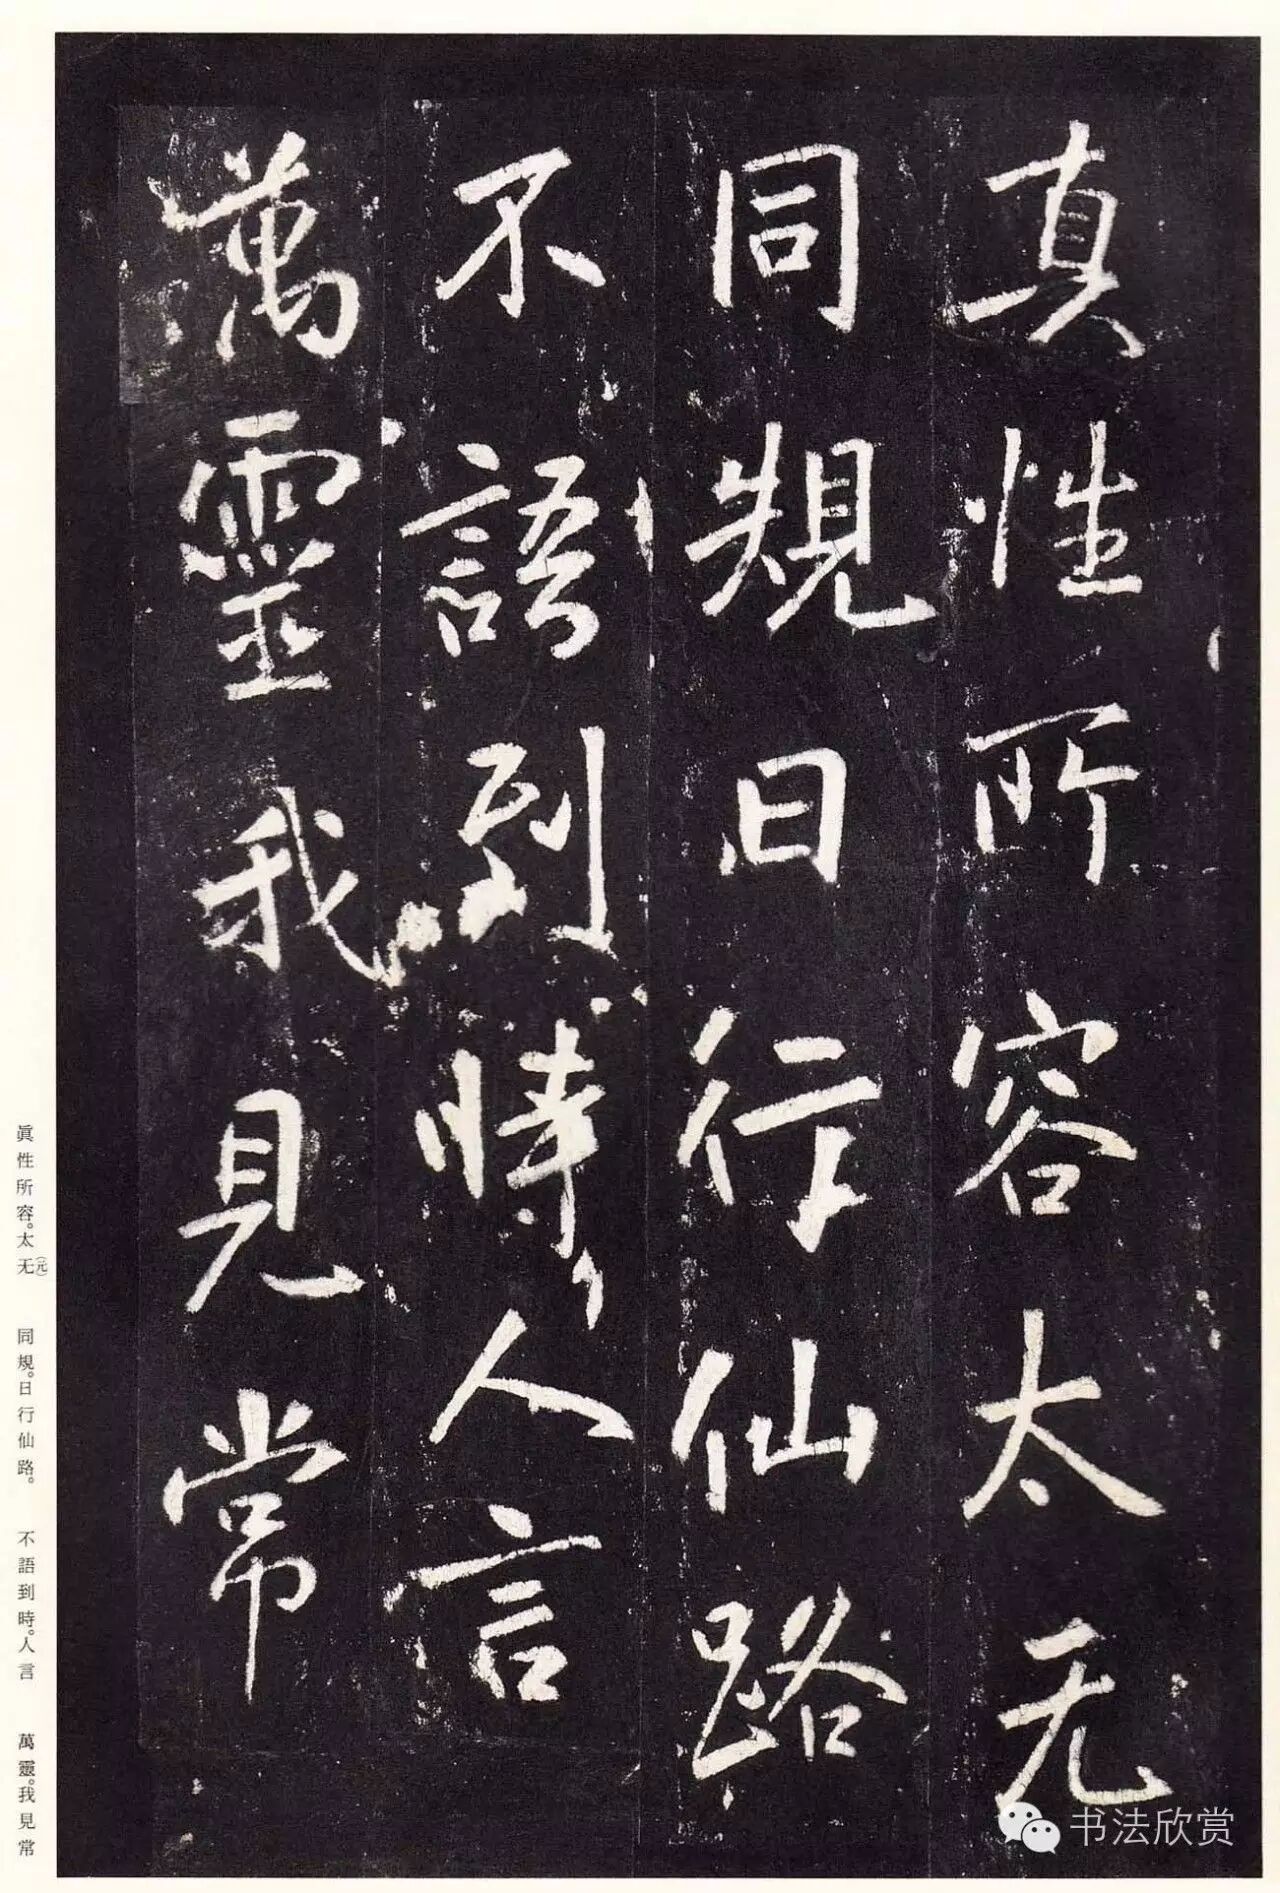 真性所容太无
同規日行仙路
不語到時人言
萬靈我見常
眞性所容。太无(元) 同規。日行仙路。 不語到時。人言 萬靈。我見常
书法欣赏